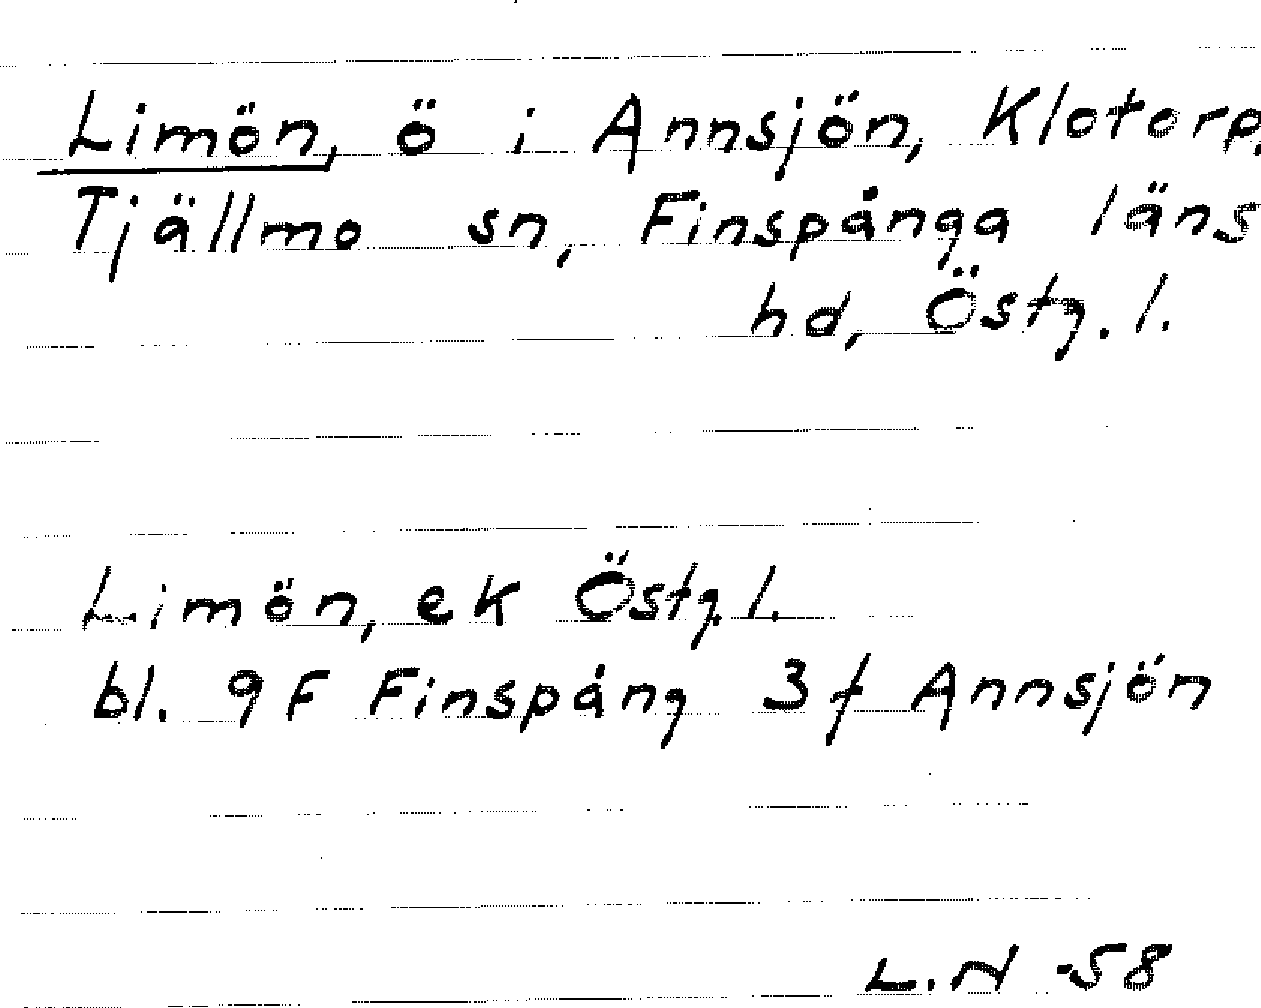 Limön, ö i Annsjön, Klotorp,
Tjällmo sn, Finspånga läns
hd, Östg. l.
Limön, ek Östg. l.
bl. 9F Finspång 3f Annsjön
L.N -58